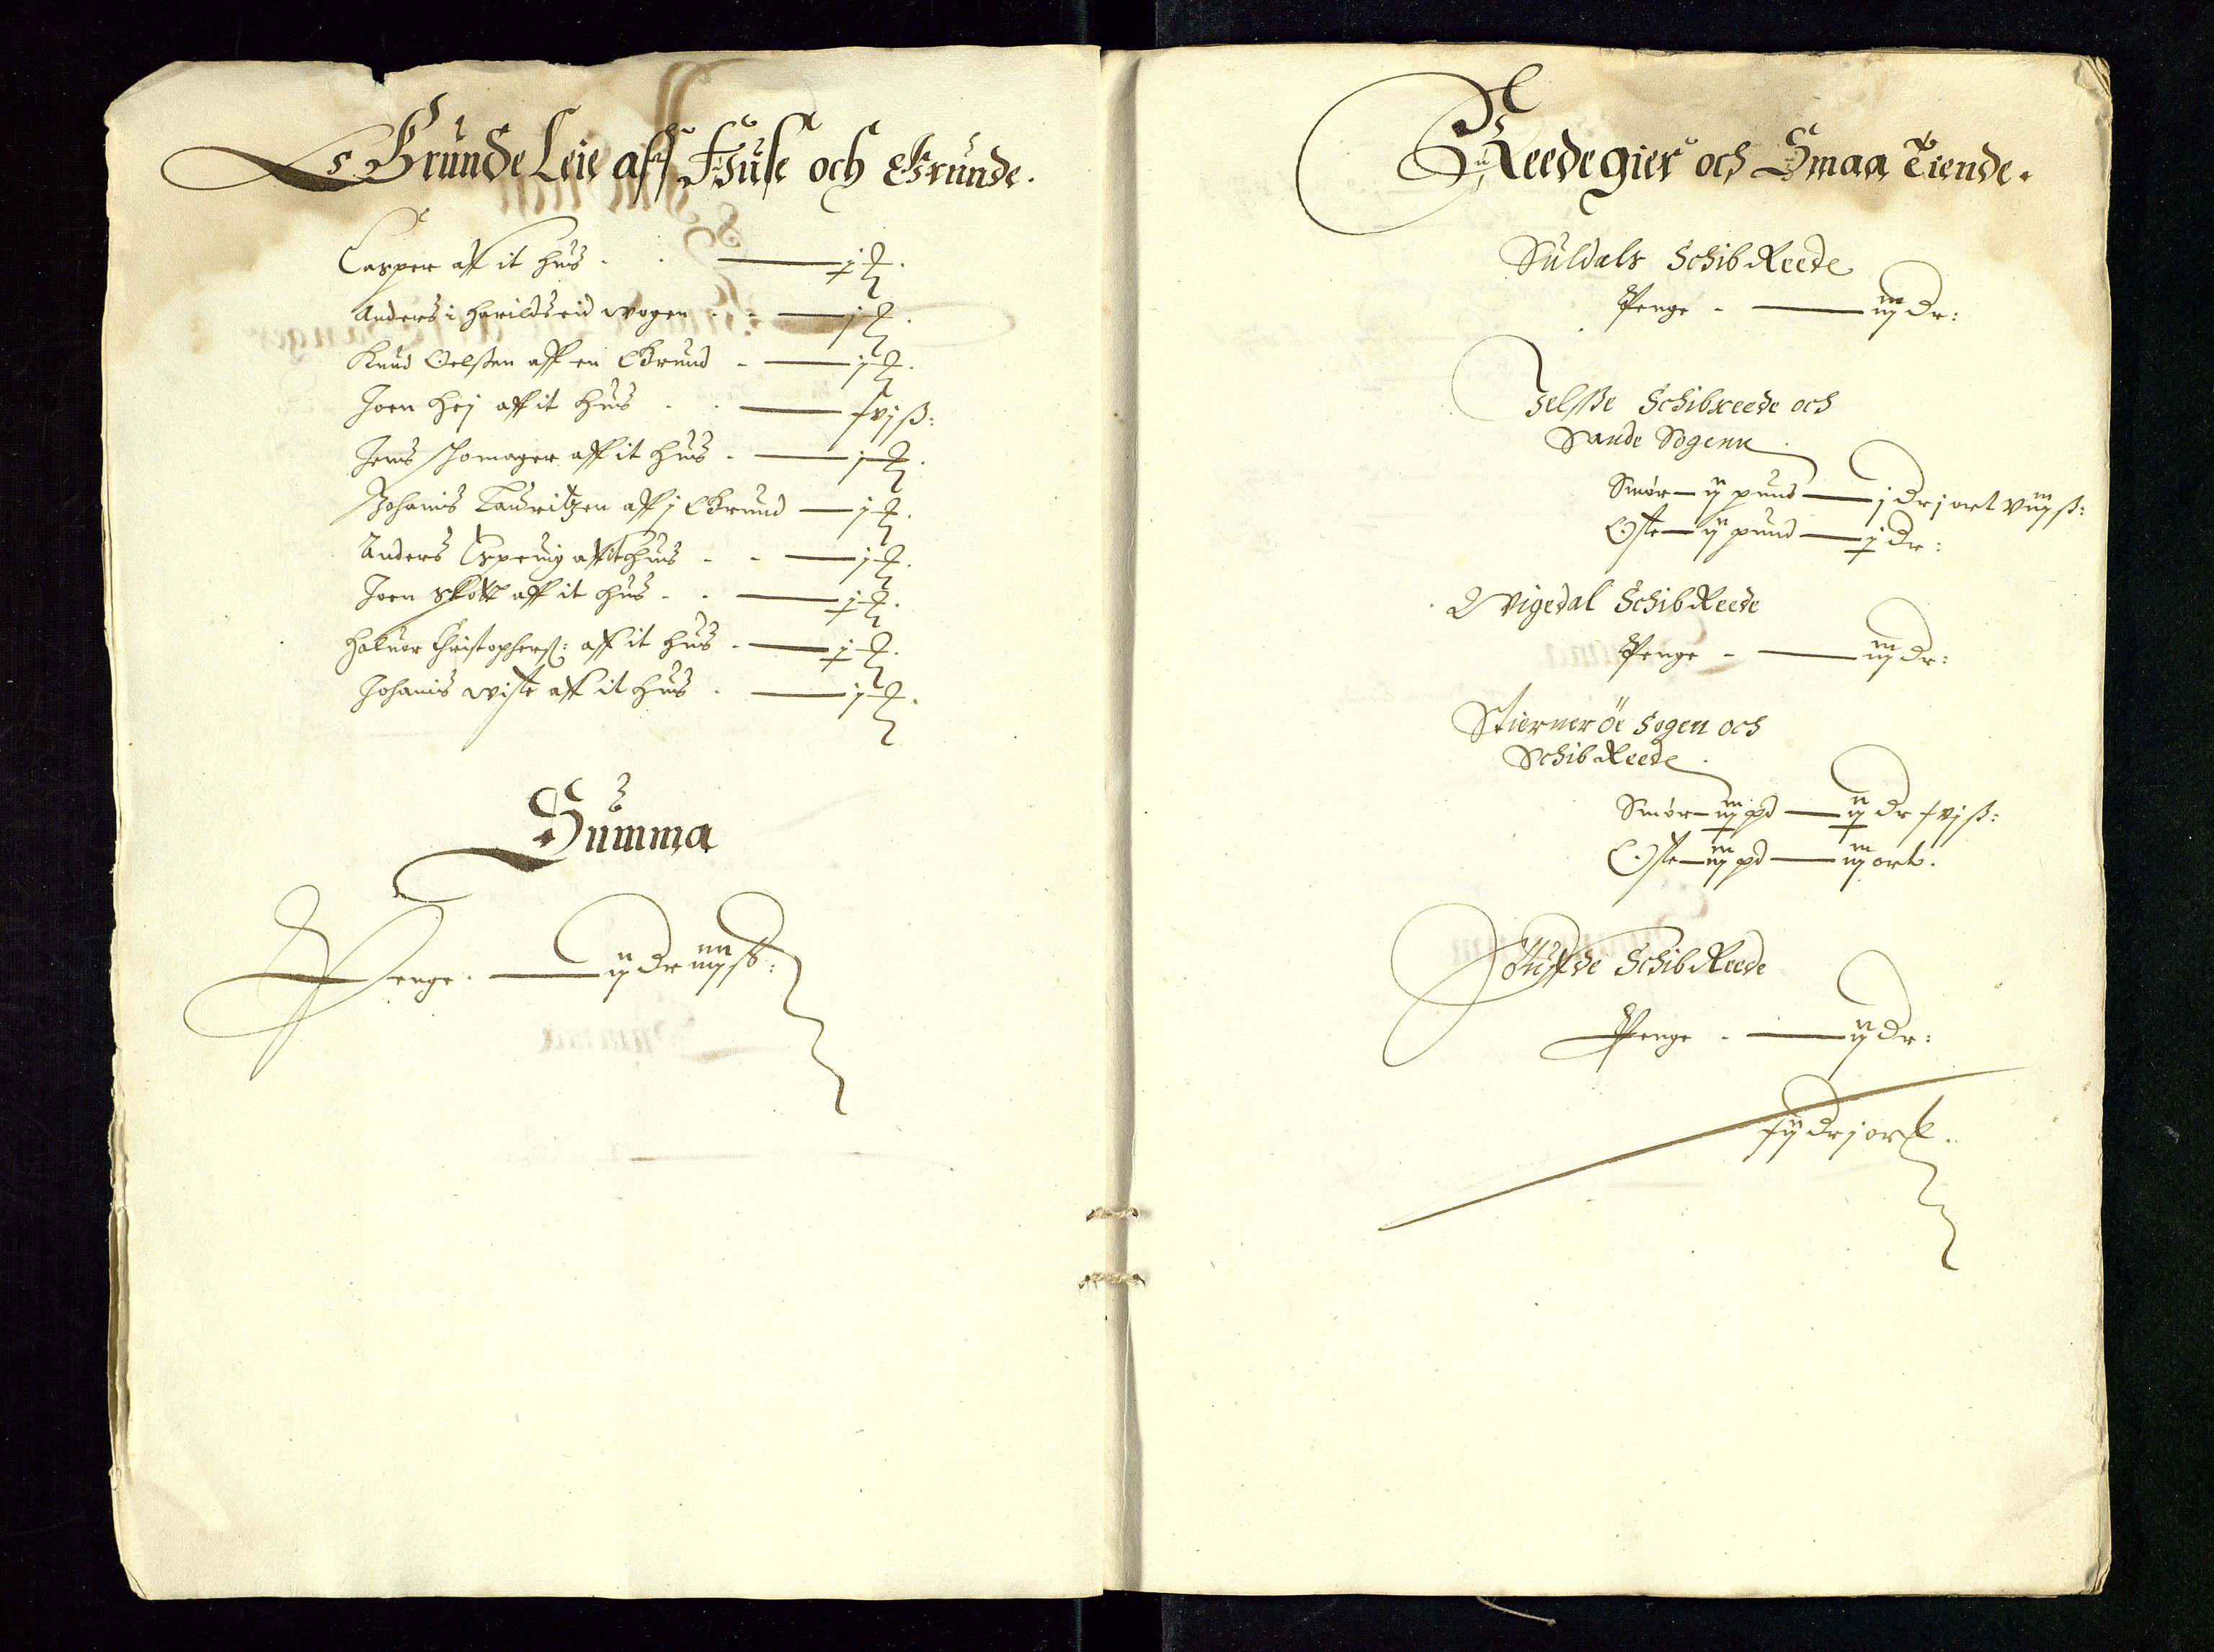 Grunde Leie aff Huse och Grunde.
Casper aff it huus
Anders i harildseid wogen
Knud Oelßen aff en Grund
Joen hej aff it huus
Jens schomager aff it huus
Johanis Lauritzen aff j Grund
Anders aff it huus
Joen skott aff it huus
haluor Christopherß: aff it huus
Johanis wiste aff it huus
Summa
Penge. ij dr iiij ß:
Reedegier och Smaa Tiende.
Suldals SchibReede
Penge - iij dr:
Jelsße Schibreede och
Sande Sogenn
Smør - ij pund - j dr j ort viij ß:
Oste - ij pund - j dr:
Wigedal SchibReede
Penge - iij dr:
Stierner Öe Sogen och
SchibReede
Smør - iij pd - ij dr xvj ß:
Oste - iij pd - iij ort.
SchibReede
Penge - ij dr:
xij dr j ort.